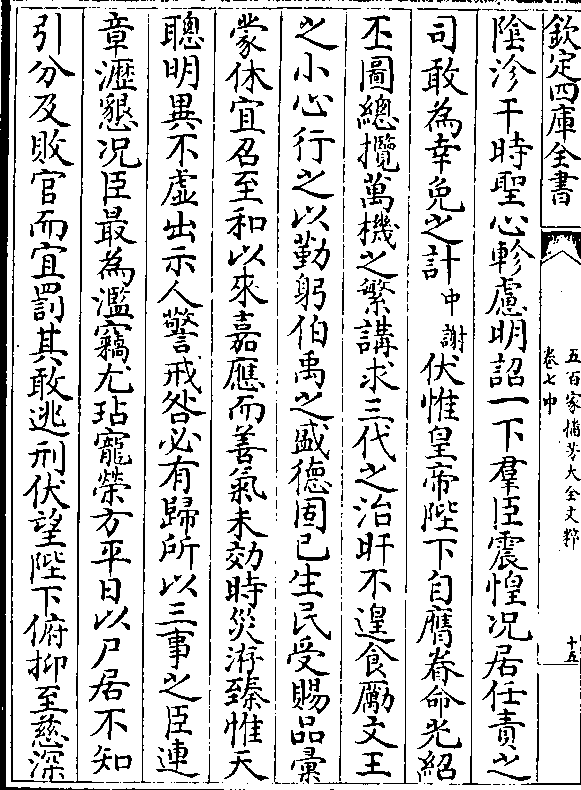 欽定四庫全書
五百家播芳大全文粹
卷七中
十五
陰沴干時聖心軫慮明詔一下羣臣震惶况居任責之
司敢為幸免之計中謝伏惟皇帝陛下自膺眷命光紹
丕圖總攬萬機之繁講求三代之治旰不遑食勵文王
之小心行之以勤躬伯禹之盛德固已生民受賜品彙
蒙休宜召至和以來嘉應而善氣未効時災洊臻惟天
聰明異不虛出示人警戒咎必有歸所以三事之臣連
章瀝懇况臣最為濫竊尤玷寵榮方平日以尸居不知
引分及敗官而宜罰其敢逃刑伏望陛下俯抑至慈深